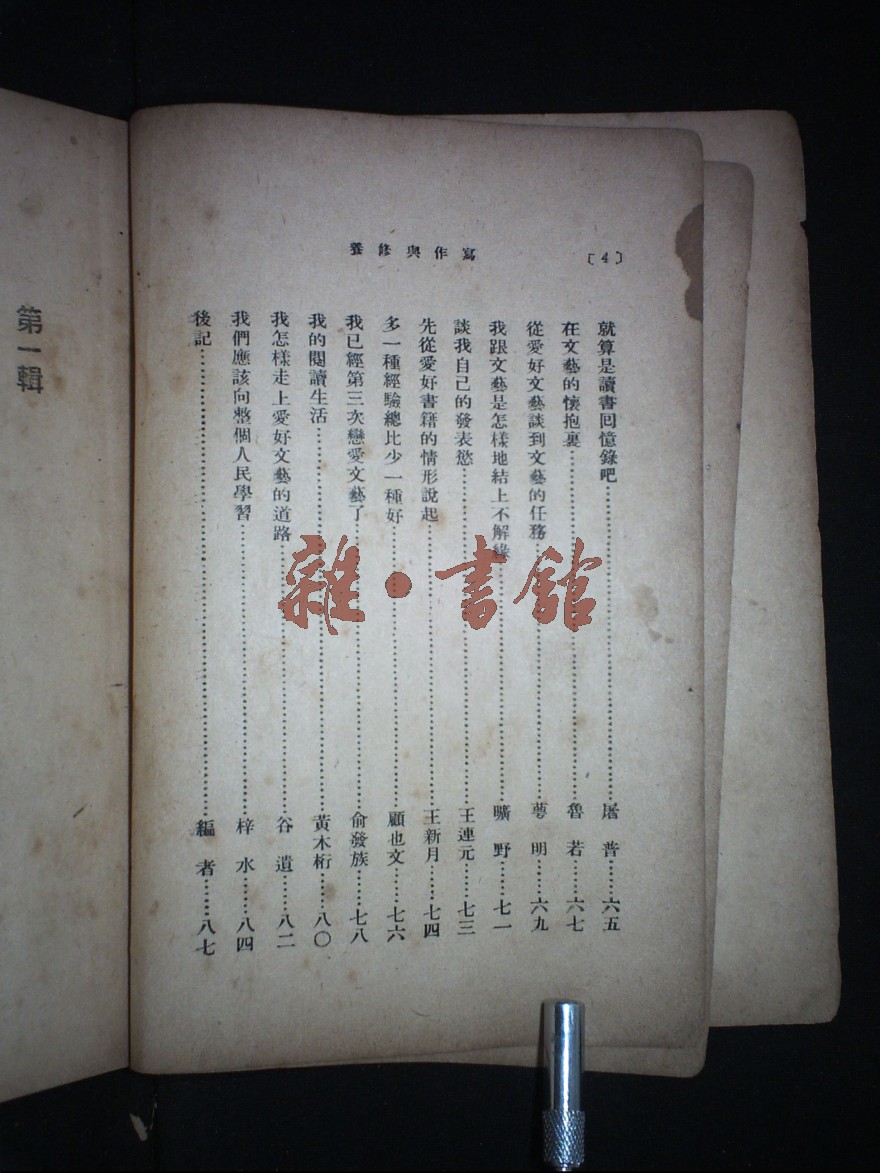 寫作與修養
〔4〕
就算是讀書回憶錄吧……屠普……六五
在文藝的懷抱裏……魯若……六七
從愛好文藝談到文藝的任務……萼明……六九
我跟文藝是怎樣地結上不解緣……曠野……七一
談我自己的發表慾……王連元……七三
先從愛好書籍的情形說起……王新月……七四
多一種經驗總比少一種好……顧也文……七六
我已經第三次戀愛文藝了……俞發族……七八
我的閱讀生活……黃木桁……八〇
我怎樣走上愛好文藝的道路……谷遺……八二
我們應該向整個人民學習……梓水……八四
後記……編者……八七
第一輯
雜·書館